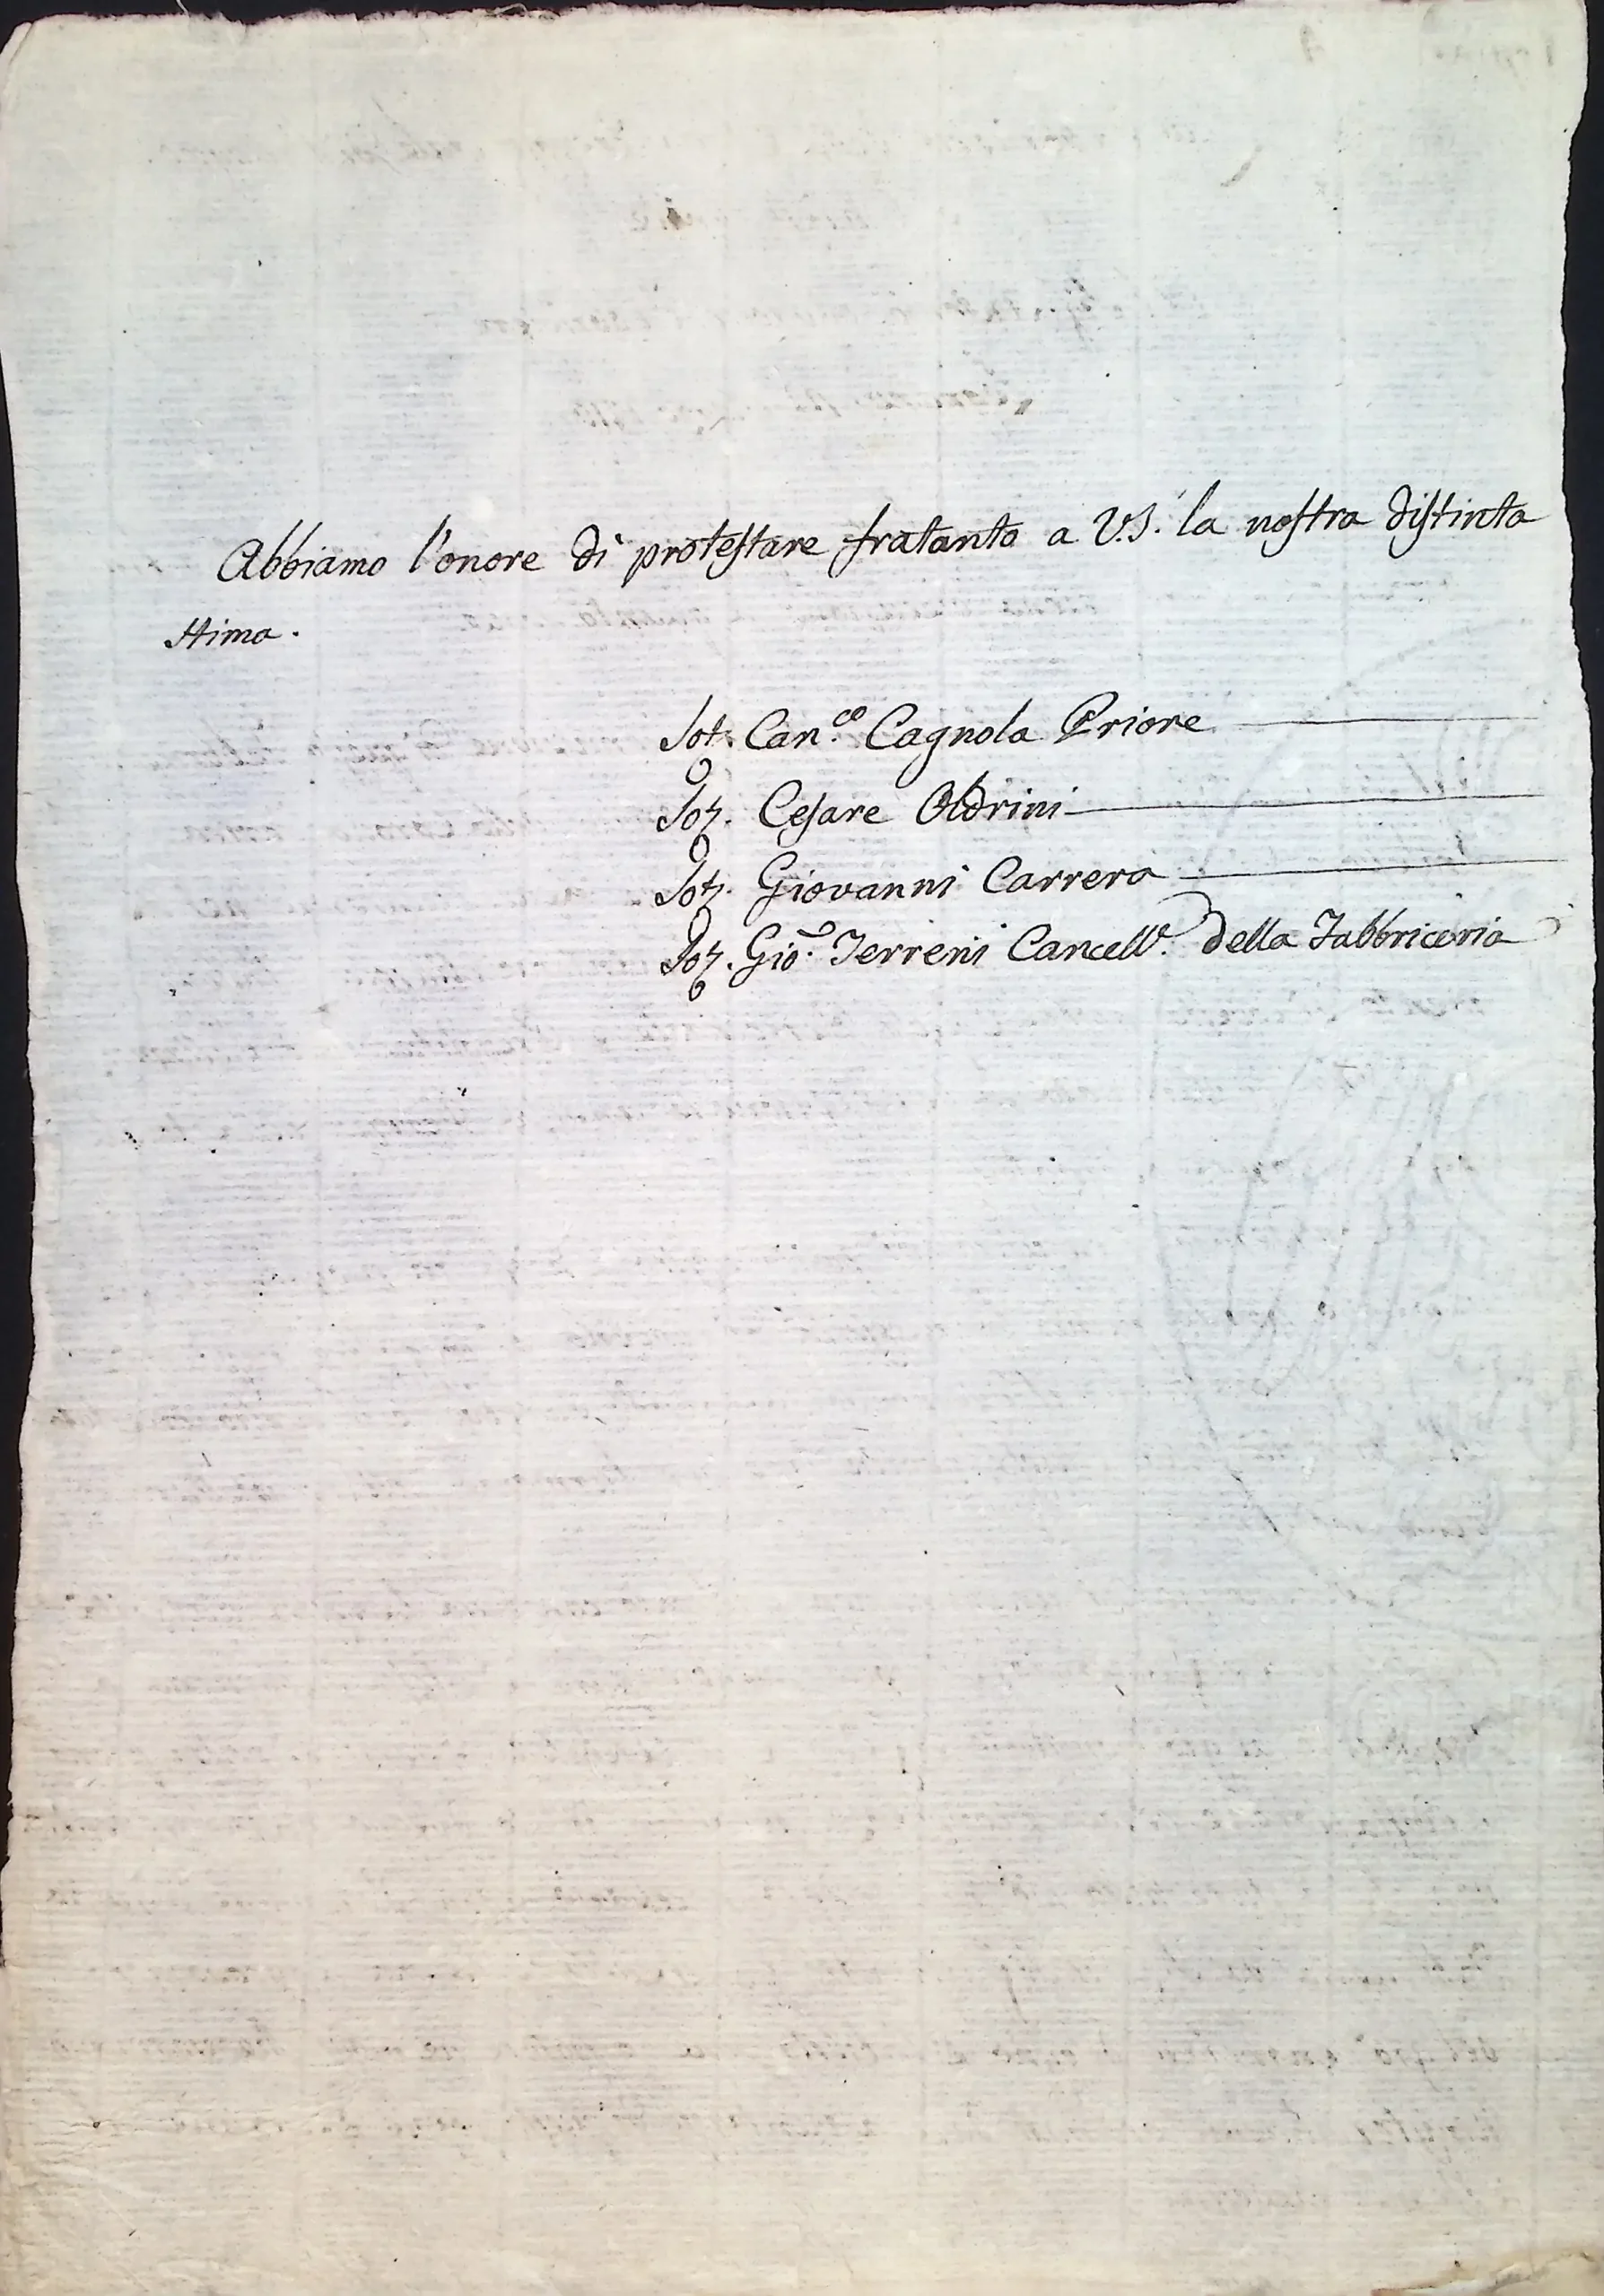 Abbiamo l'onore di protestare fratanto a V.S. la nostra distinta
stima.
Sot. Can.co Cagnola Priore
Sot. Cesare Oldrini
Sot. Giovanni Carrera
Sot. Gio. Terreni Cancell.e della Fabbriceria